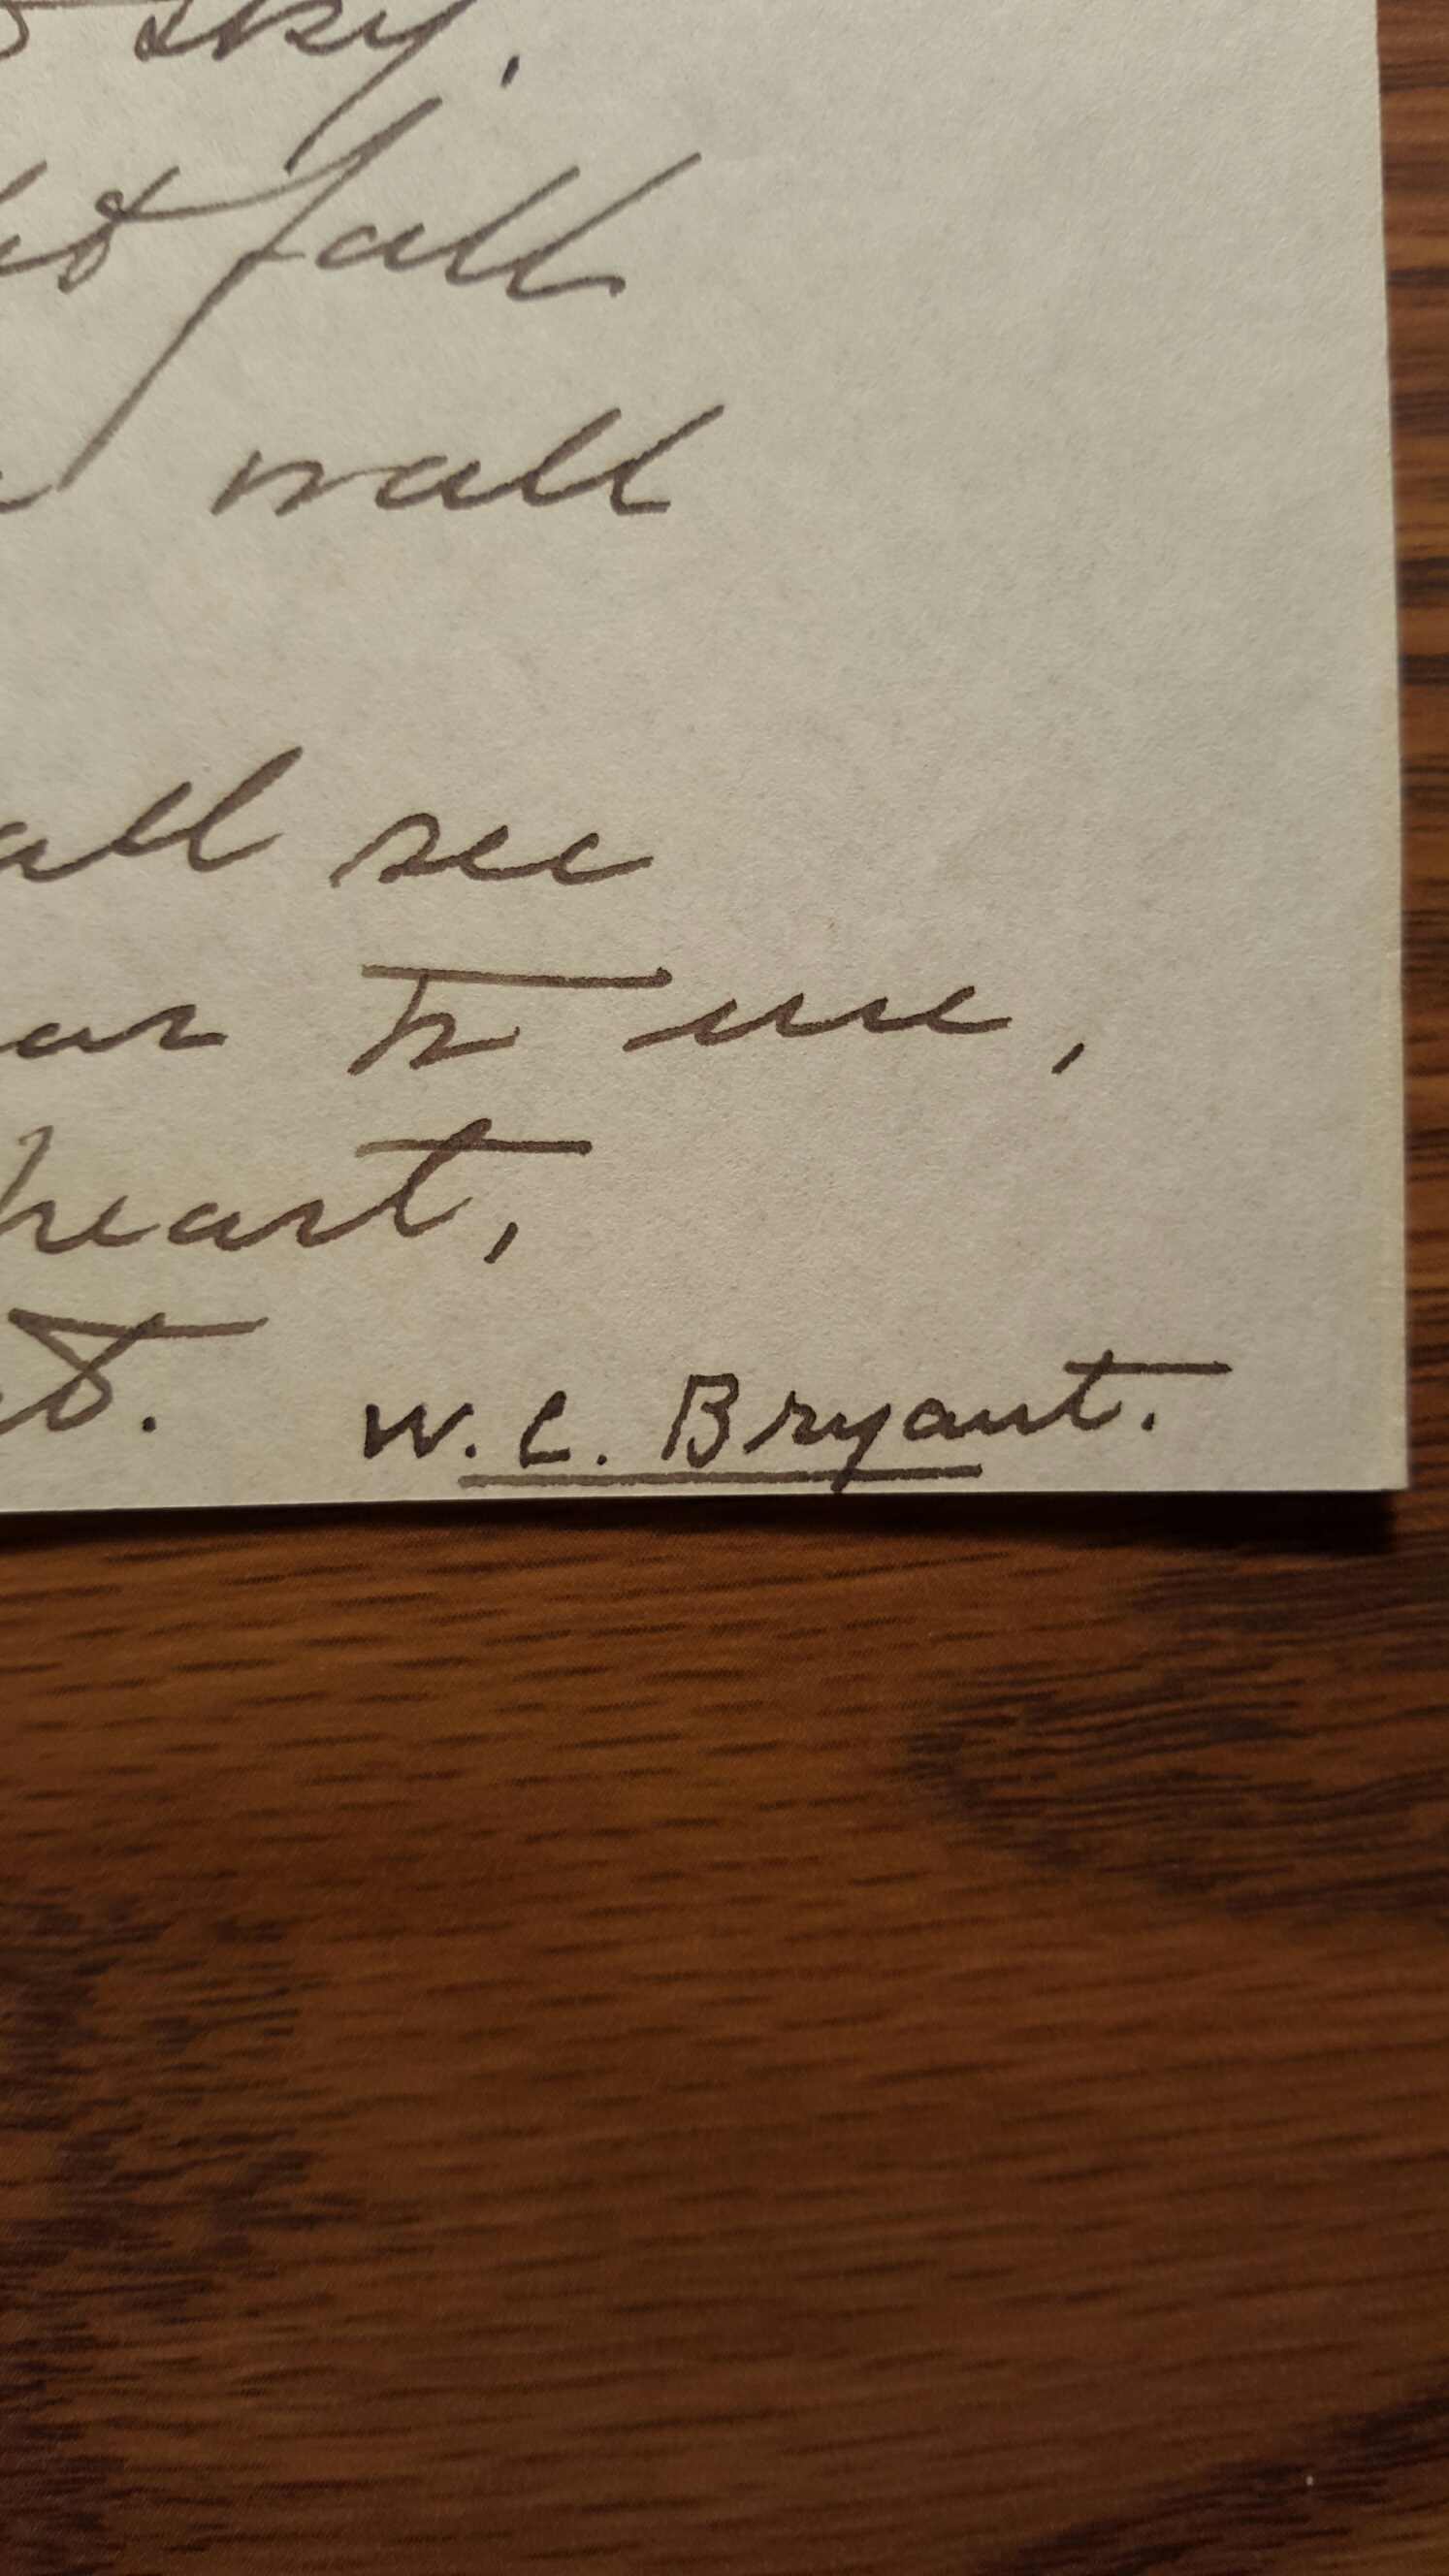 sky,
let fall
wall
all see
ar to me,
heart,
t. W. C. Bryant.